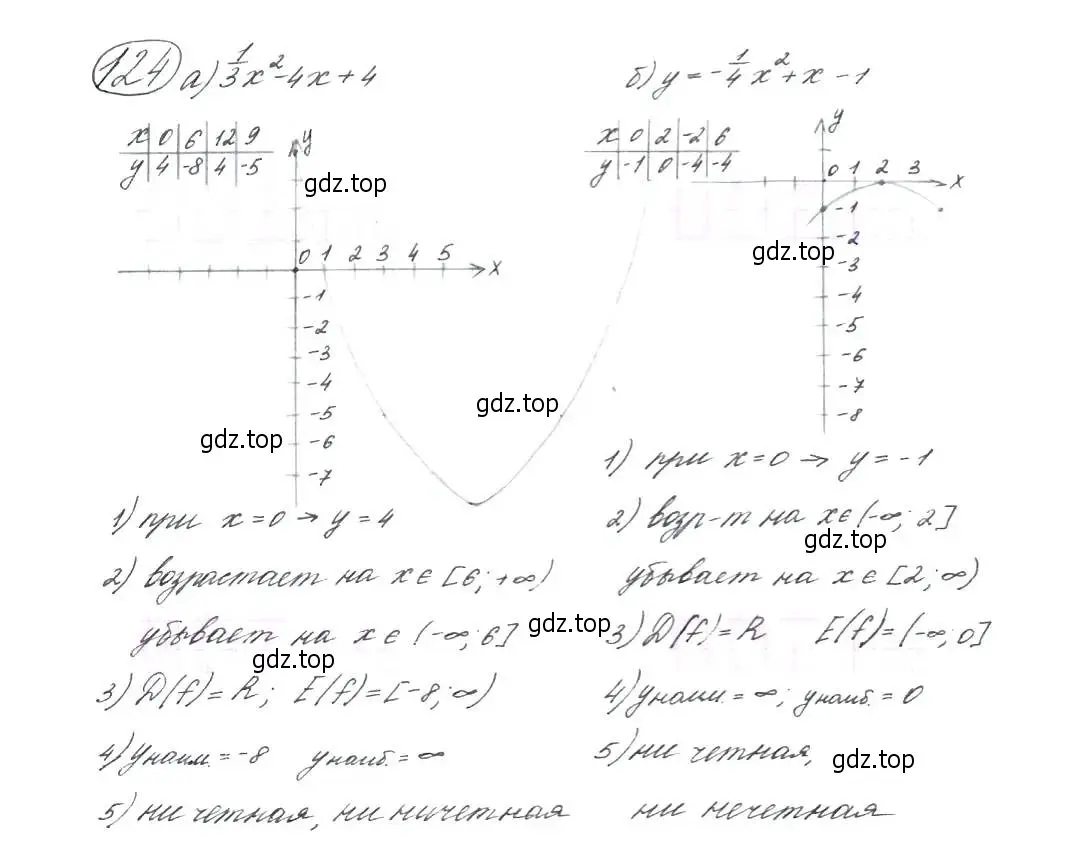 124 а) 1/3 x² - 4x + 4
x | 0 | 6 | 12 | 9
y | 4 | -8 | 4 | -5
y
gdz.top
0 1 2 3 4 5 x
-1
-2
-3
-4
-5
-6
-7
gdz.top
gdz.top
1) при x = 0 → y = 4
2) возрастает на x ∈ [6; +∞)
убывает на x ∈ (-∞; 6]
gdz.top
gdz.top
3) D(f) = R; E(f) = [-8; ∞)
4) yнаим. = -8 yнаиб. = ∞
5) ни четная, ни ничетная
б) y = -1/4 x² + x - 1
x | 0 | 2 | -2 | 6
y | -1 | 0 | -4 | -4
y
0 1 2 3 x
-1
-2
-3
-4
-5
-6
-7
-8
gdz.top
1) при x = 0 → y = -1
2) возр-т на x ∈ (-∞; 2]
gdz.top
убывает на x ∈ [2; ∞)
3) D(f) = R E(f) = (-∞; 0]
4) yнаим. = ∞; yнаиб. = 0
5) ни четная,
gdz.top
ни нечетная